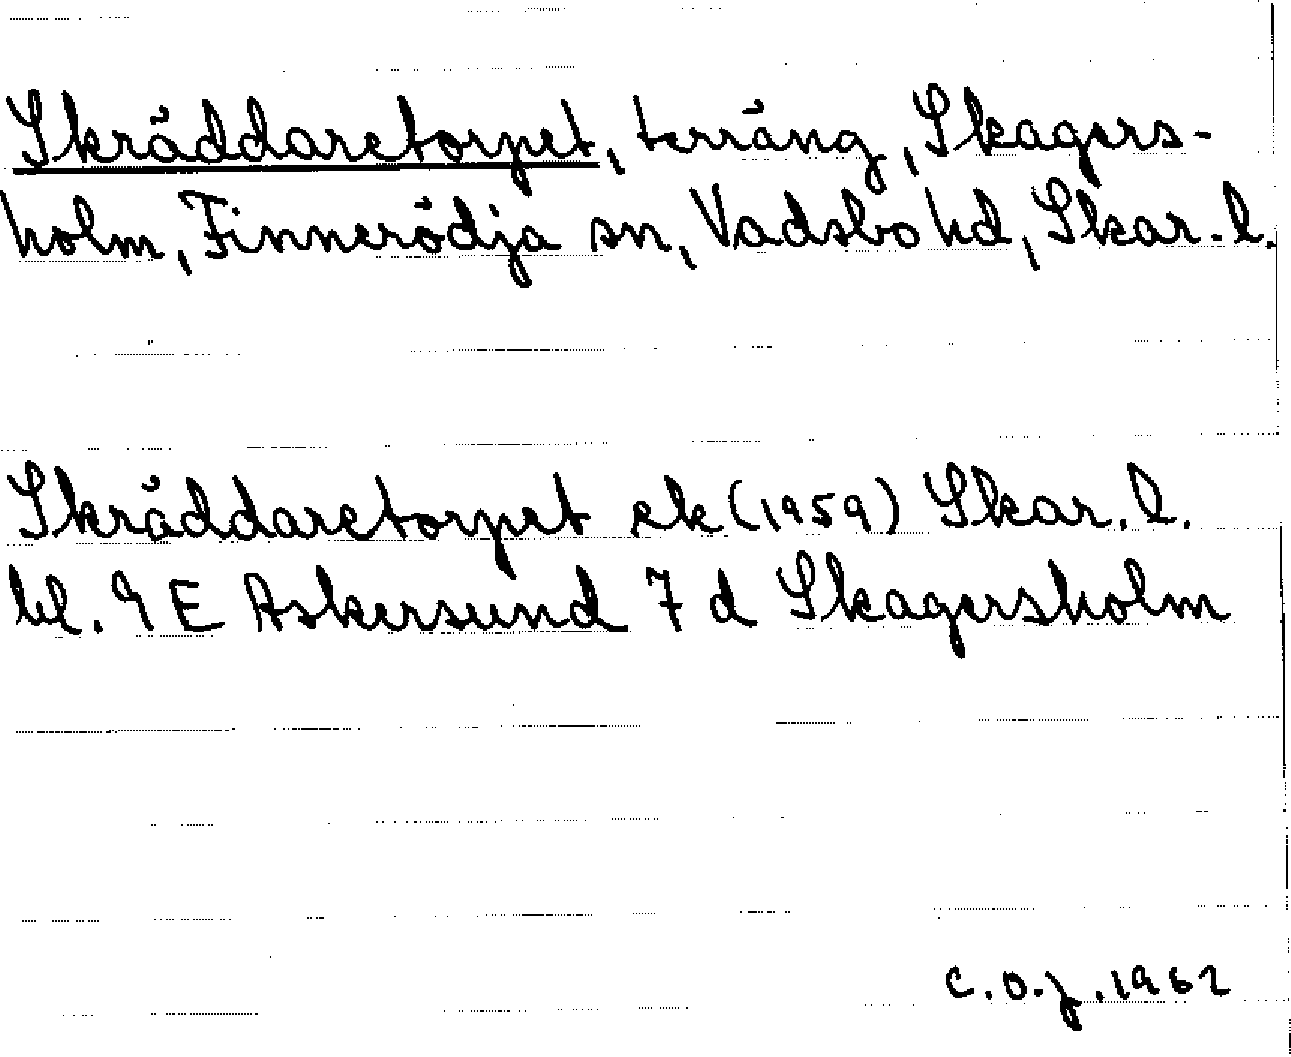 Skräddaretorpet, terräng, Skagers-
holm, Finnerödja sn, Vadsbo hd, Skar. l.
Skräddaretorpet ek (1959) Skar. l.
bl. 9 E Askersund 7 d Skagersholm
C.O.J. 1962